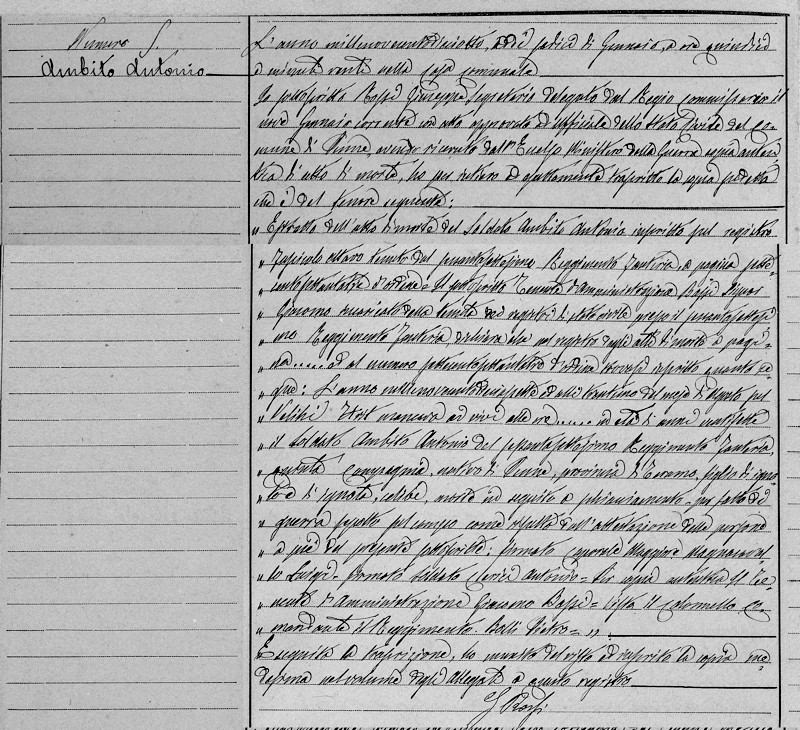 Numero 5.
Ambito Antonio
L'anno millenovecentodiciotto, addì sedici di Gennaio, a ore quindici
e minuti venti nella casa comunale
Io sottoscritto Rossi Giuseppe Segretario delegato dal Regio Commissario il
nove Gennaio corrente con atto approvato Ufficiale dello Stato Civile del Co-
mune di Penne, avendo ricevuto dall'Eccelso Ministero della Guerra copia auten-
tica d'atto di morte, ho per intiero ed esattamente trascritto la copia predetta
che è del tenore seguente:
„ Estratto dell'atto di morte del Soldato Ambito Antonio inscritto sul registro
„ fascicolo ottavo tenuto dal sessantasettesimo Reggimento Fanteria, a pagina sette-
„ centosettantatre d'ordine = Il sottoscritto Tenente d'Amministrazione Bassi Signor
„ Giacomo incaricato della tenuta dei registri di stato civile presso il sessantasettesi-
„ mo Reggimento Fanteria dichiara che sul registro degli atti di morte a pagi-
„ na........ ed al numero settecentosettantatre d'ordine trovasi inscritto quanto se-
„ gue: L'anno millenovecentodiciassette ed alli trentuno del mese di Agosto sul
„ Velihi Hrst mancava ai vivi alle ore......... in età di anni ventisette
„ il Soldato Ambito Antonio del sessantasettesimo Reggimento Fanteria,
„ Compagnia, nativo di Penne, provincia di Teramo, figlio di igno-
„ to e di ignota, celibe, morto in seguito a schiacciamento per fatto di
„ guerra sepolto sul campo come risulta dall'attestazione delle persone
„ a piè del presente sottoscritte: firmato Caporale Maggiore
„ lo Luigi = firmato Soldato Antonio = Per copia autentica Il Te-
„ nente d'Amministrazione Giacomo Bassi = Visto Il Colonnello Co-
„ mandante il Reggimento Balli Pietro = „ .
Eseguita la trascrizione, ho munito del visto ed inserito la copia me-
desima nel volume degli allegati a questo registro
G Rossi